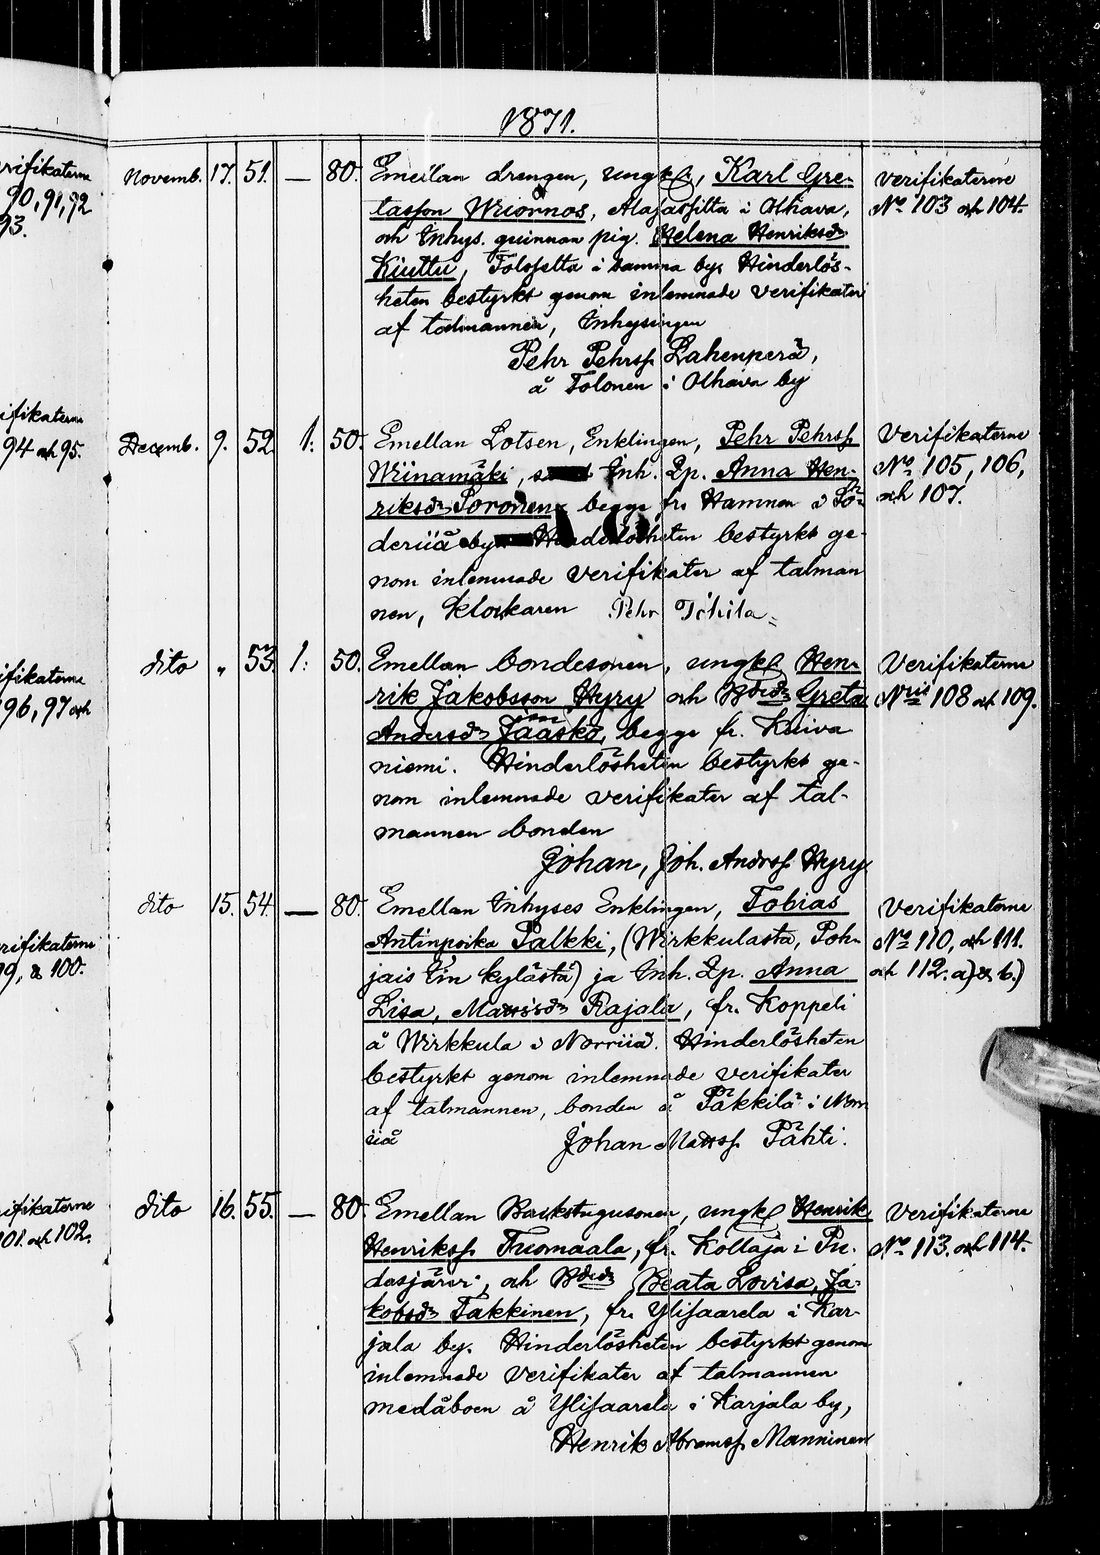 1871.
rifikaterne
90, 91, 92
93.
ifikaterne
94 och 95.
ifikaterne
96, 97 och
rifikaterne
99, & 100.
ifikaterne
101. och 102.
Novemb. 17. 51. — 80. Emellan drengen, ungk., Karl Gre-
tasson Wiiornos, i Olhava,
och Inhys. quinnan pig. Helena Henriksdr
Kiuttu, i samma by. Hinderlös-
heten bestyrkt genom inlemnade verifikater
af talmannen, Inhysingen
Pehr Pehrsf Lahenperä,
å Tolonen i Olhava by
Verifikaterne
No 103 och 104.
Decemb. 9. 52. 1: 50. Emellan Lotsen, Enklingen, Pehr Pehrsf
Wiinamäki, Inh. Ep. Anna Hen-
riksdr Soronen begge fr. Hamnen i Sö-
deriiå by Hinderlösheten bestyrkt ge-
nom inlemnade verifikater af talman
nen, klockaren Pehr Tihila
Verifikaterne
No 105, 106,
och 107.
dito " 53. 1: 50. Emellan bondesonen, ungk. Hen-
rik Jakobsson Hyry och Bdedr Greta
Andersdr Jääskö, begge fr. Kuiva
niemi. Hinderlösheten bestyrkt ge-
nom inlemnade verifikater af tal-
mannen bonden
Johan, Joh. Andrsf Hyry
Verifikaterne
Nris 108 och 109.
dito 15. 54. — 80. Emellan Inhyses Enklingen, Tobias
Antinpoika Palkki, (Wirkkulasta, Poh-
jais Iin kylästä) ja Inh. Ep. Anna
Lisa, Mattsdr Rajala, fr. Koppeli
å Wirkkula i Norriiå. Hinderlösheten
bestyrkt genom inlemnade verifikater
af talmannen, bonden å Päkkilä i Norr
iiå Johan Mattsf Pähti.
Verifikaterne
No 110, och 111.
och 112. a) & b.)
dito 16. 55. — 80. Emellan Backstugusonen, ungk. Henrik
Henriksf Tuomaala, fr. Kollaja i Pu-
dasjärvi, och Bdedr Beata Lovisa, Ja-
kobsdr Takkinen, fr. Ylisaarela i Kar-
jala by. Hinderlösheten bestyrkt genom
inlemnade verifikater af talmannen
medåboen å Ylisaarela i Karjala by,
Henrik Abramsf Manninen
Verifikaterne
No 113. och 114.